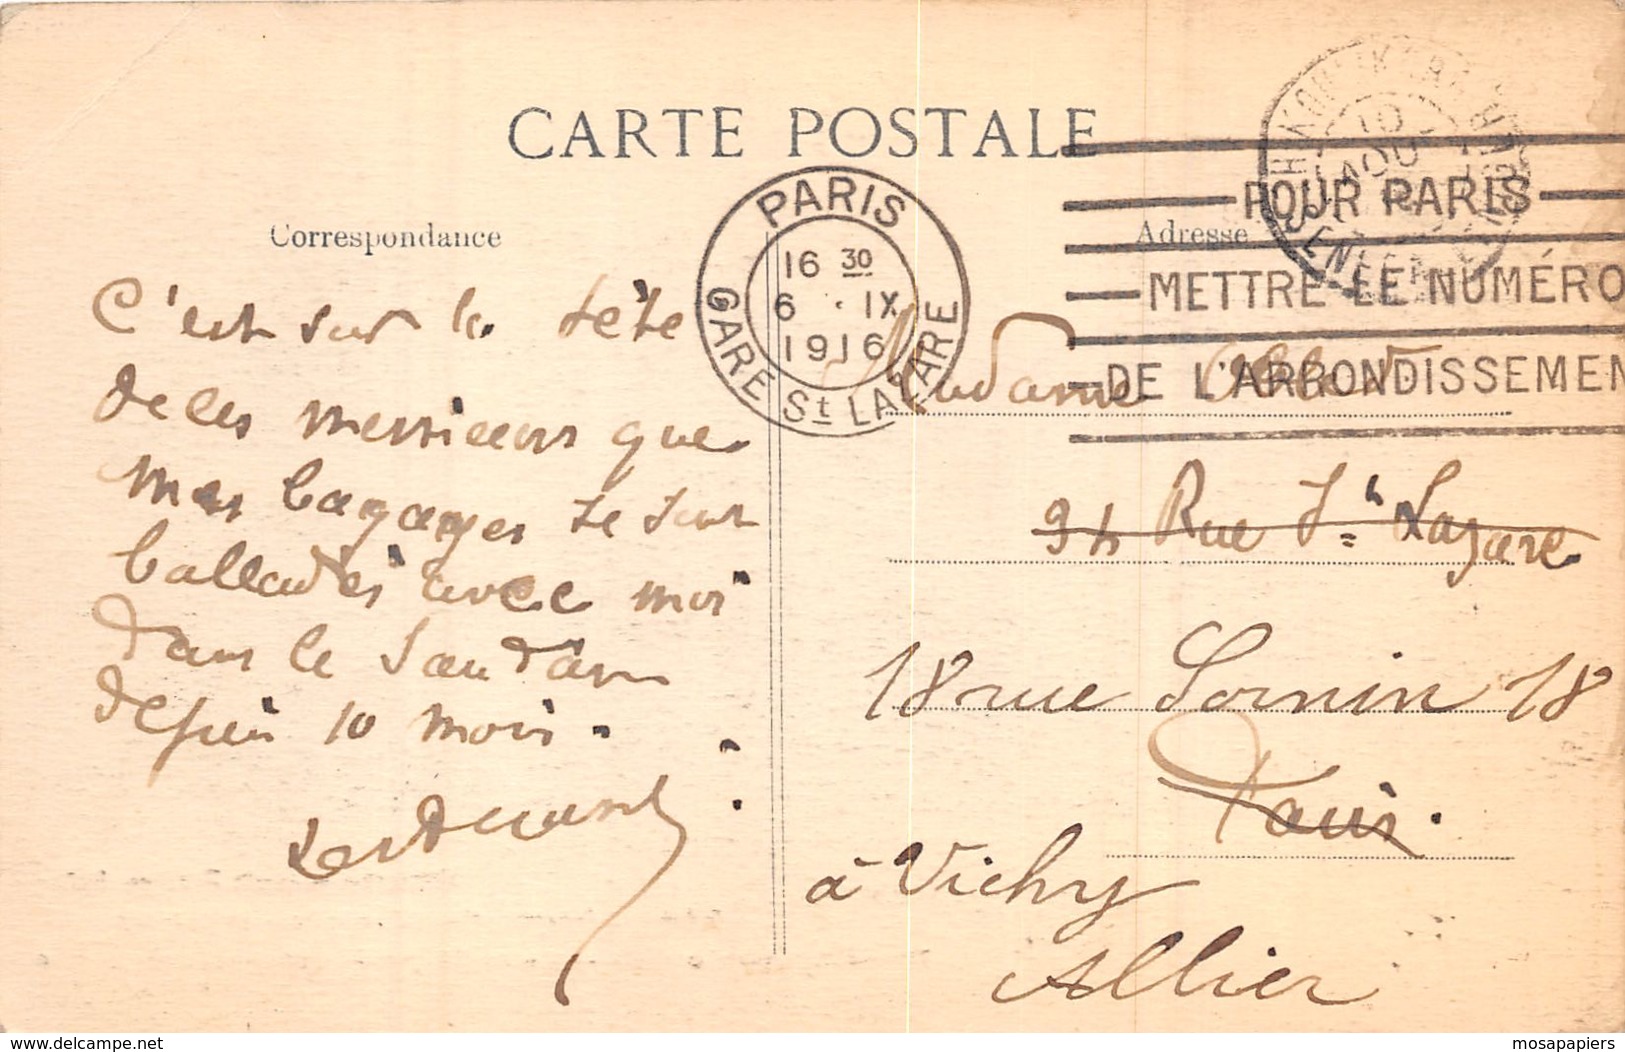 CARTE POSTALE
Correspondance
Adresse
PARIS
16 30
6 · IX
1916
GARE St LAZARE
POUR PARIS
METTRE LE NUMÉRO
DE L'ARRONDISSEMEN
10
AOU
C'est sur la tête
de ces messieurs que
mes bagages se sont
balladés avec moi
dans le Soudan
depuis 10 mois.
Madame
94 Rue St Lazare
18 rue Sornin 18
Paris.
à Vichy
Allier
www.delcampe.net
mosapapiers